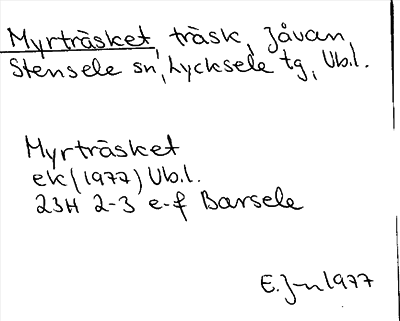 Myrträsket, träsk, Jåvan,
Stensele sn, Lycksele tg, Vb.l.
Myrträsket
ek (1977) Vb.l.
23H 2-3 e-f Barsele
E. J-n 1977